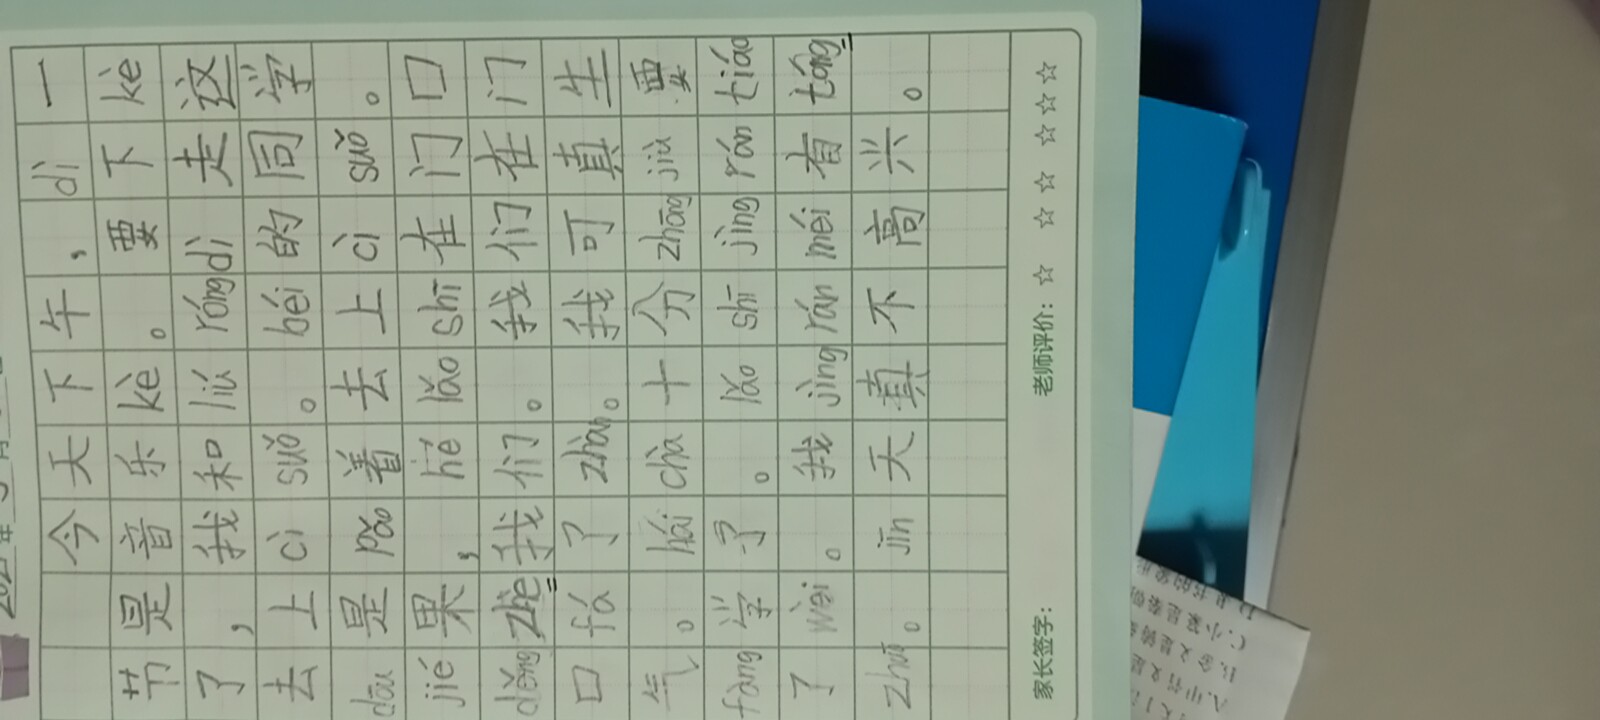 今天下午，dì一
节是音乐kè。要下kè
了，我和liú róng dì走这
去上cì suǒ。béi的同学
dāu是pǎo着去上cì suǒ。
jié果，hé lǎo shī在门口
děng zhe我们。我们在门
口fá了zhàn。我可真生
气。hái chà十分zhōng jiù要
fàng学了。lǎo shī jìng rán tiáo
了wèi。我jìng rán méi有tóng
zhuō。jīn天真不高兴。
家长签字： 老师评价：☆ ☆ ☆ ☆ ☆